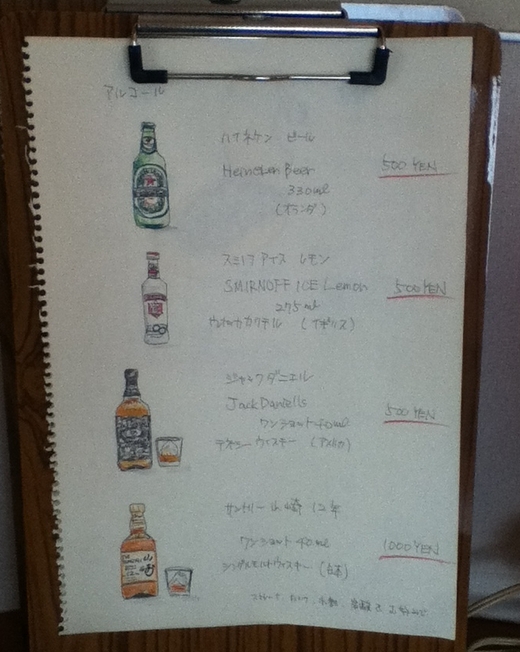 アルコール
ハイネケン ビール
Heineken Beer
500 YEN
330ml
(オランダ)
スミノフ アイス レモン
SMIRNOFF ICE Lemon
500 YEN
275ml
ウォッカカクテル (イギリス)
ジャックダニエル
Jack Daniells
500 YEN
ワンショット 40ml
テネシー ウィスキー (アメリカ)
サントリー 山崎 12年
ワンショット 40ml
1000 YEN
シングルモルトウィスキー (日本)
山崎
ストレート、ロック、水割